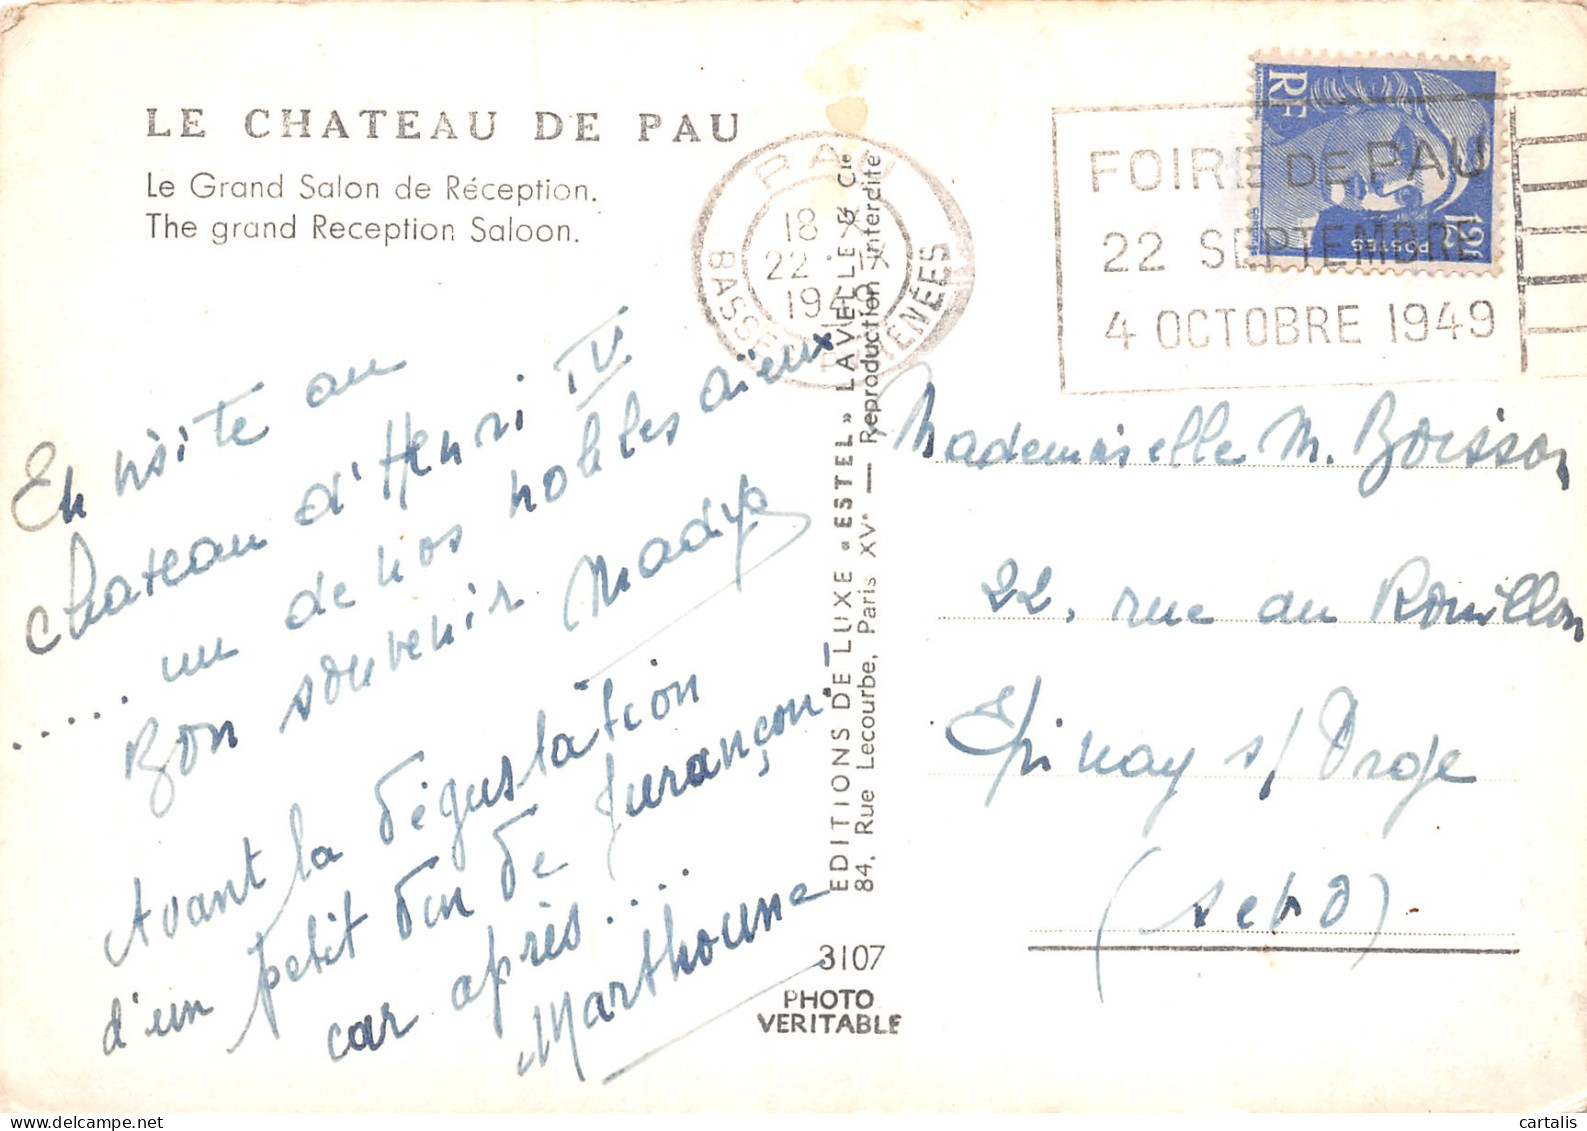 LE CHATEAU DE PAU
Le Grand Salon de Réception.
The grand Reception Saloon.
En visite au
chateau d'Henri IV
..... un de nos nobles aïeux
Bon souvenir Madyp
Avant la dégustation
d'un petit vin de Jurançon!
car après.....
Marthoune
EDITIONS DE LUXE « ESTEL » LAVELLE & Cie
84, Rue Lecourbe, Paris XVe — Reproduction interdite
3107
PHOTO
VERITABLE
PAU
18 H
22 - IX
1949
BASSES PYRENÉES
FOIRE DE PAU
22 SEPTEMBRE
4 OCTOBRE 1949
RF
12F
POSTES
Mademoiselle M. Boisson
22, rue au Rouillon
Epinay s/ Orge
(s et O)
cartalis